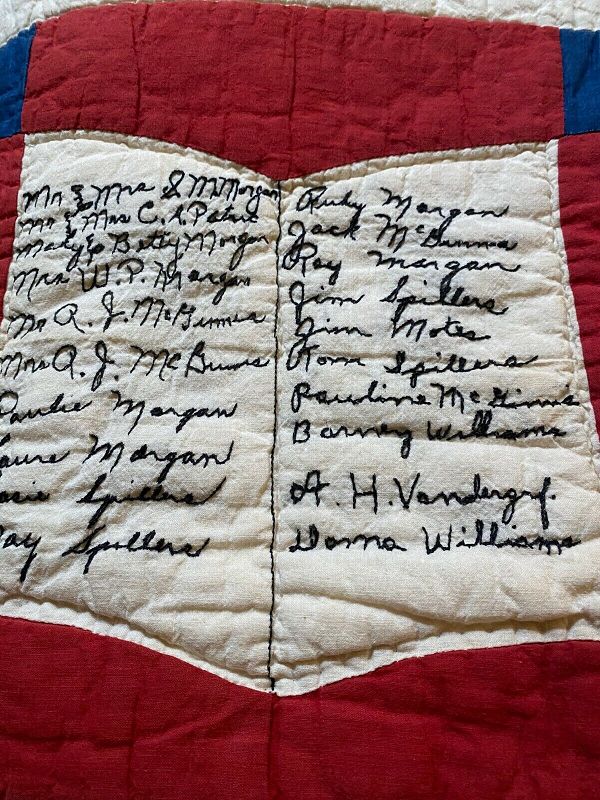 Mr & Mrs S. M. Morgan
Mr & Mrs C. E.
Mary & Betty Morgan
Mrs W. P. Morgan
Mr R. J. McGinnis
Mrs R. J. McGinnis
Morgan
Morgan
Spillers
Spillers
Ruby Morgan
Jack McGinnis
Roy Morgan
Jim Spillers
Jim Motes
Tom Spillers
Pauline McGinnis
Barney Williams
A. H. Vandergrf.
Dorna Williams